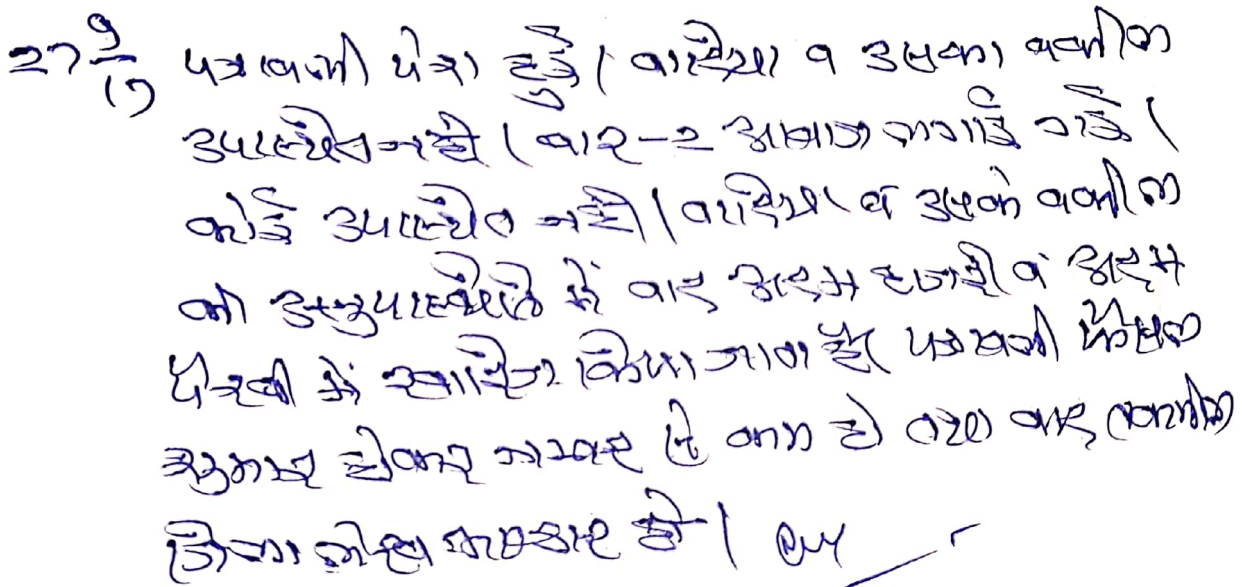 27 9/17 पत्रावली पेश हुई। वादिया व उसका वकील
उपस्थित नही। बार-2 आवाज लगाई गई।
कोई उपस्थित नही। वादिया व उसके वकील
की अनुपस्थिति में वाद अदम हाजरी व अदम
पैरवी में खारिज किया जाता है। पत्रावली फैसल
शुमार होकर नम्बर से कम हो तथा बाद तकमील
जिला लेखागार हो।